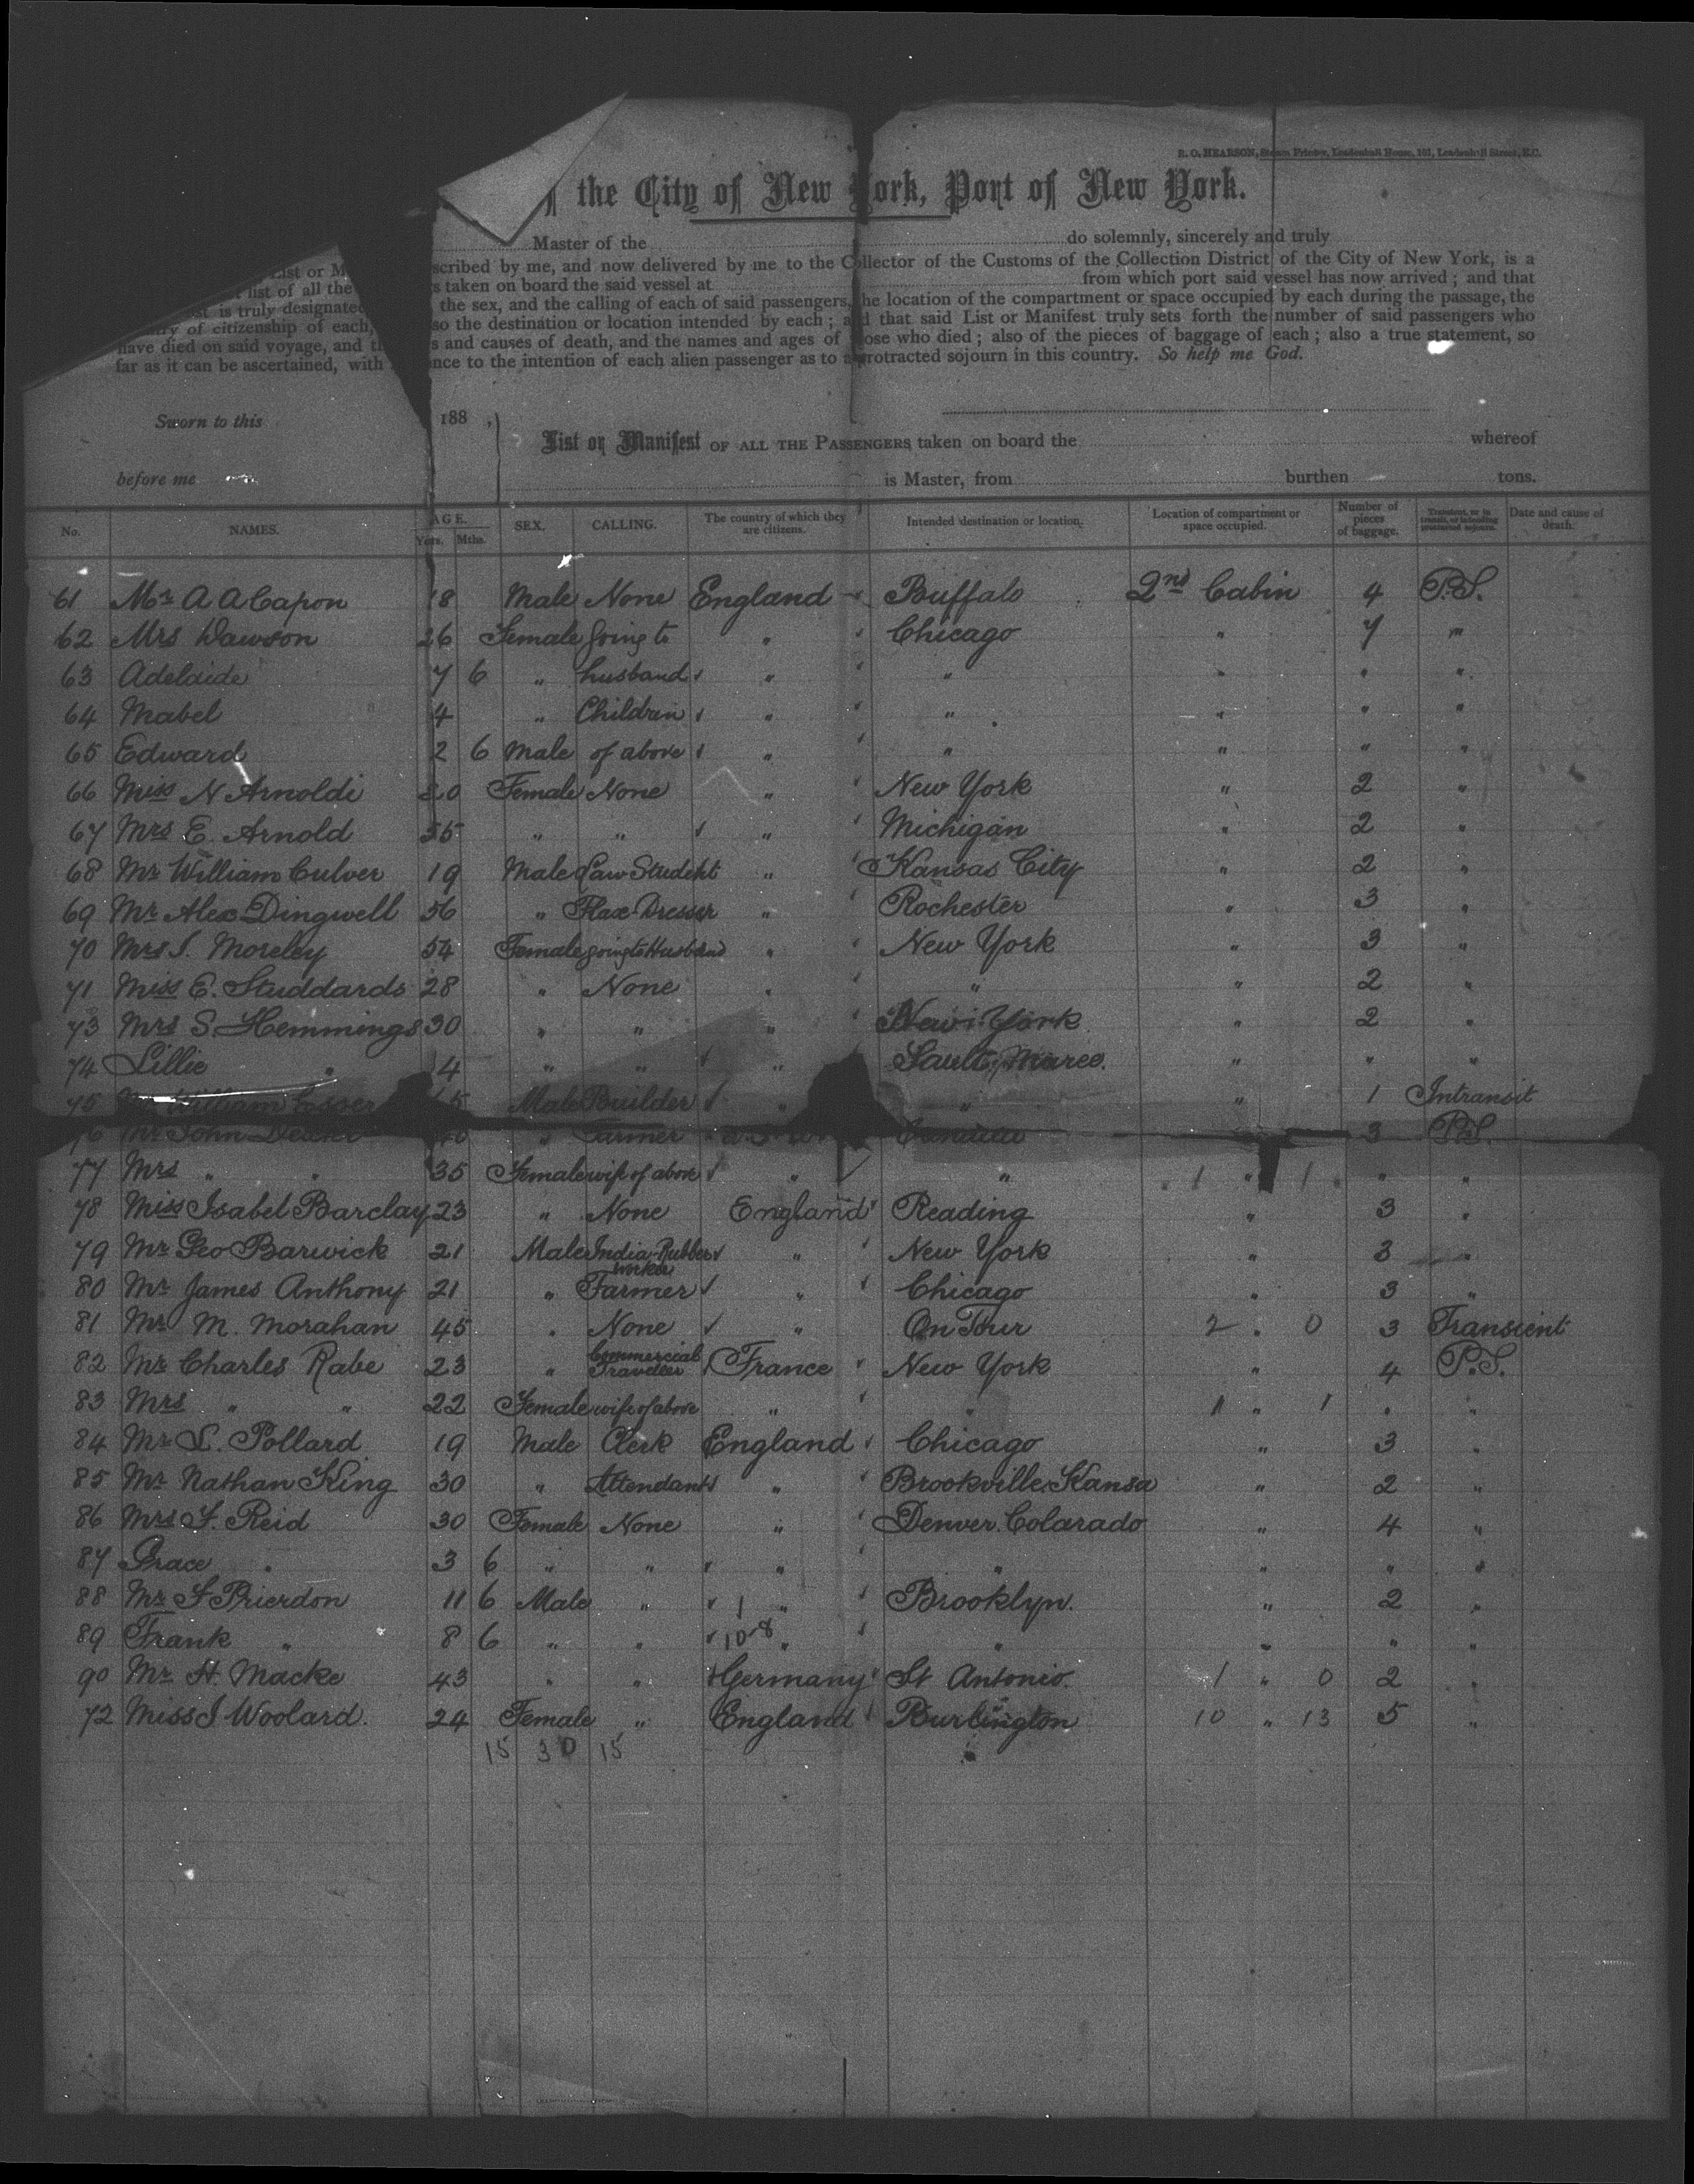 R. O. HEARSON, Steam Printer, Leadenhall House, 101, Leadenhall Street, E.C.
the City of New York, Port of New York.
Master of the do solemnly, sincerely and truly
List or M scribed by me, and now delivered by me to the Collector of the Customs of the Collection District of the City of New York, is a
list of all the s taken on board the said vessel at from which port said vessel has now arrived; and that
is truly designated the sex, and the calling of each of said passengers, the location of the compartment or space occupied by each during the passage, the
of citizenship of each, so the destination or location intended by each; and that said List or Manifest truly sets forth the number of said passengers who
have died on said voyage, and th s and causes of death, and the names and ages of those who died; also of the pieces of baggage of each; also a true statement, so
far as it can be ascertained, with ence to the intention of each alien passenger as to a protracted sojourn in this country. So help me God.
Sworn to this 188 ,
List or Manifest OF ALL THE PASSENGERS taken on board the whereof
before me is Master, from burthen tons.
No. NAMES. AGE. Yers. Mths. SEX. CALLING. The country of which they are citizens. Intended destination or location. Location of compartment or space occupied. Number of pieces of baggage. Transient, or in transit, or intending protracted sojourn. Date and cause of death.
61 Mr A A Capon 18 Male None England Buffalo 2nd Cabin 4 P.S.
62 Mrs Dawson 26 Female going to " Chicago " 7 "
63 Adelaide 7 6 " husband " " " " "
64 Mabel 4 " Children " " " " "
65 Edward 2 6 Male of above " " " " "
66 Miss N Arnoldi 20 Female None " New York " 2 "
67 Mrs E. Arnold 55 " " " Michigan " 2 "
68 Mr William Culver 19 Male Law Student " Kansas City " 2 "
69 Mr Alex Dingwell 56 " Flax Dresser " Rochester " 3 "
70 Mrs S. Moreley 54 Female going to Husband " New York " 3 "
71 Miss E. Studdards 28 " None " " " 2 "
73 Mrs S. Hemmings 30 " " " New York " 2 "
74 Lillie " 4 " " " Sault " " "
75 William Male Builder " " " 1 Intransit
76 Mr John " Farmer 3 P.S.
77 Mrs " " 35 Female wife of above " " 1 " 1 " "
78 Miss Isabel Barclay 23 " None England Reading " 3 "
79 Mr Geo Barwick 21 Male India-Rubber worker " New York " 3 "
80 Mr James Anthony 21 " Farmer " Chicago " 3 "
81 Mr M. Morahan 45 " None " On Tour 2 " 0 3 Transient
82 Mr Charles Rabe 23 " Commercial Traveller France New York " 4 P.S.
83 Mrs " " 22 Female wife of above " " 11 " 1 " "
84 Mr L. Pollard 19 Male Clerk England Chicago " 3 "
85 Mr Nathan King 30 " Attendant " Brookville Kansa " 2 "
86 Mrs F. Reid 30 Female None " Denver Colarado " 4 "
87 Grace " 3 6 " " " " " " "
88 Mr F Prierdon 11 6 Male " 1 " Brooklyn. " 2 "
89 Frank " 8 6 " " 10-8 " " " " "
90 Mr H. Macke 43 " " Germany St Antonio. 1 " 0 2 "
72 Miss J Woolard. 24 Female " England Burlington 10 " 13 5 "
15 30 15